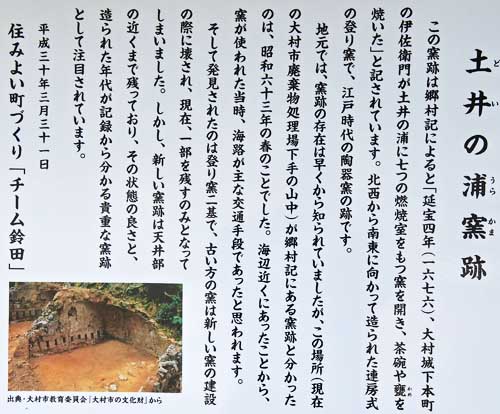 土井の浦窯跡
どいうらかま
この窯跡は郷村記によると「延宝四年(一六七六)、大村城下本町
の伊佐衛門が土井の浦に七つの燃焼室をもつ窯を開き、茶碗や甕を
かめ
焼いた」と記されています。北西から南東に向かって造られた連房式
の登り窯で、江戸時代の陶器窯の跡です。
地元では、窯跡の存在は早くから知られていましたが、この場所(現在
の大村市廃棄物処理場下手の山中)が郷村記にある窯跡と分かった
のは、昭和六十三年の春のことでした。海辺近くにあったことから、
窯が使われた当時、海路が主な交通手段であったと思われます。
そして発見されたのは登り窯二基で、古い方の窯は新しい窯の建設
の際に壊され、現在、一部を残すのみとなって
しまいました。しかし、新しい窯跡は天井部
の近くまで残っており、その状態の良さと、
造られた年代が記録から分かる貴重な窯跡
として注目されています。
平成三十年三月三十一日
住みよい町づくり「チーム鈴田」
出典・大村市教育委員会「大村市の文化財」から